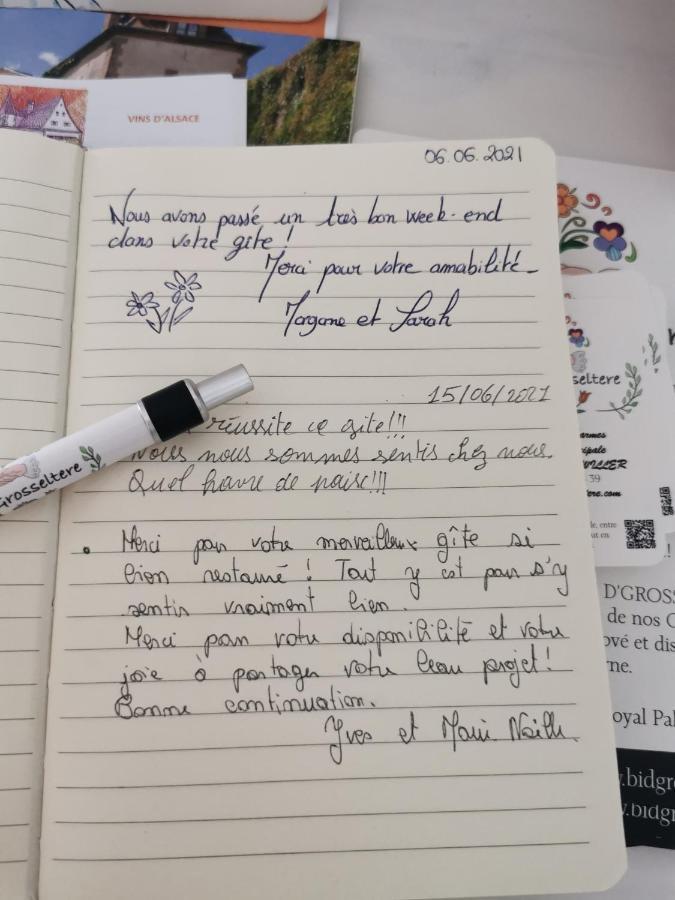 VINS D'ALSACE
06.06.2021
Nous avons passé un très bon week-end
dans votre gîte !
Merci pour votre amabilité_
Morgane et Sarah
15/06/2021
réussite ce gite!!!
Nous nous sommes sentis chez nous.
Quel havre de paix!!!
Grosseltere
• Merci pour votre merveilleux gîte si
bien restauré ! Tout y est pour s'y
sentir vraiment bien.
Merci pour votre disponibilité et votre
joie à partager votre beau projet !
Bonne continuation.
Yves et Marie Noëlle.
sseltere
armes
cipale
VILLER
39
ere.com
D'GROSS
de nos C
ové et dis
ne.
oyal Pal
.bidgr
.bidgr